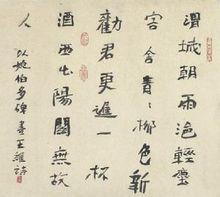 渭城朝雨浥輕塵
客舍青々柳色新
勸君更進一杯
酒西出陽關無故
人
以姚伯多碑書王維詩